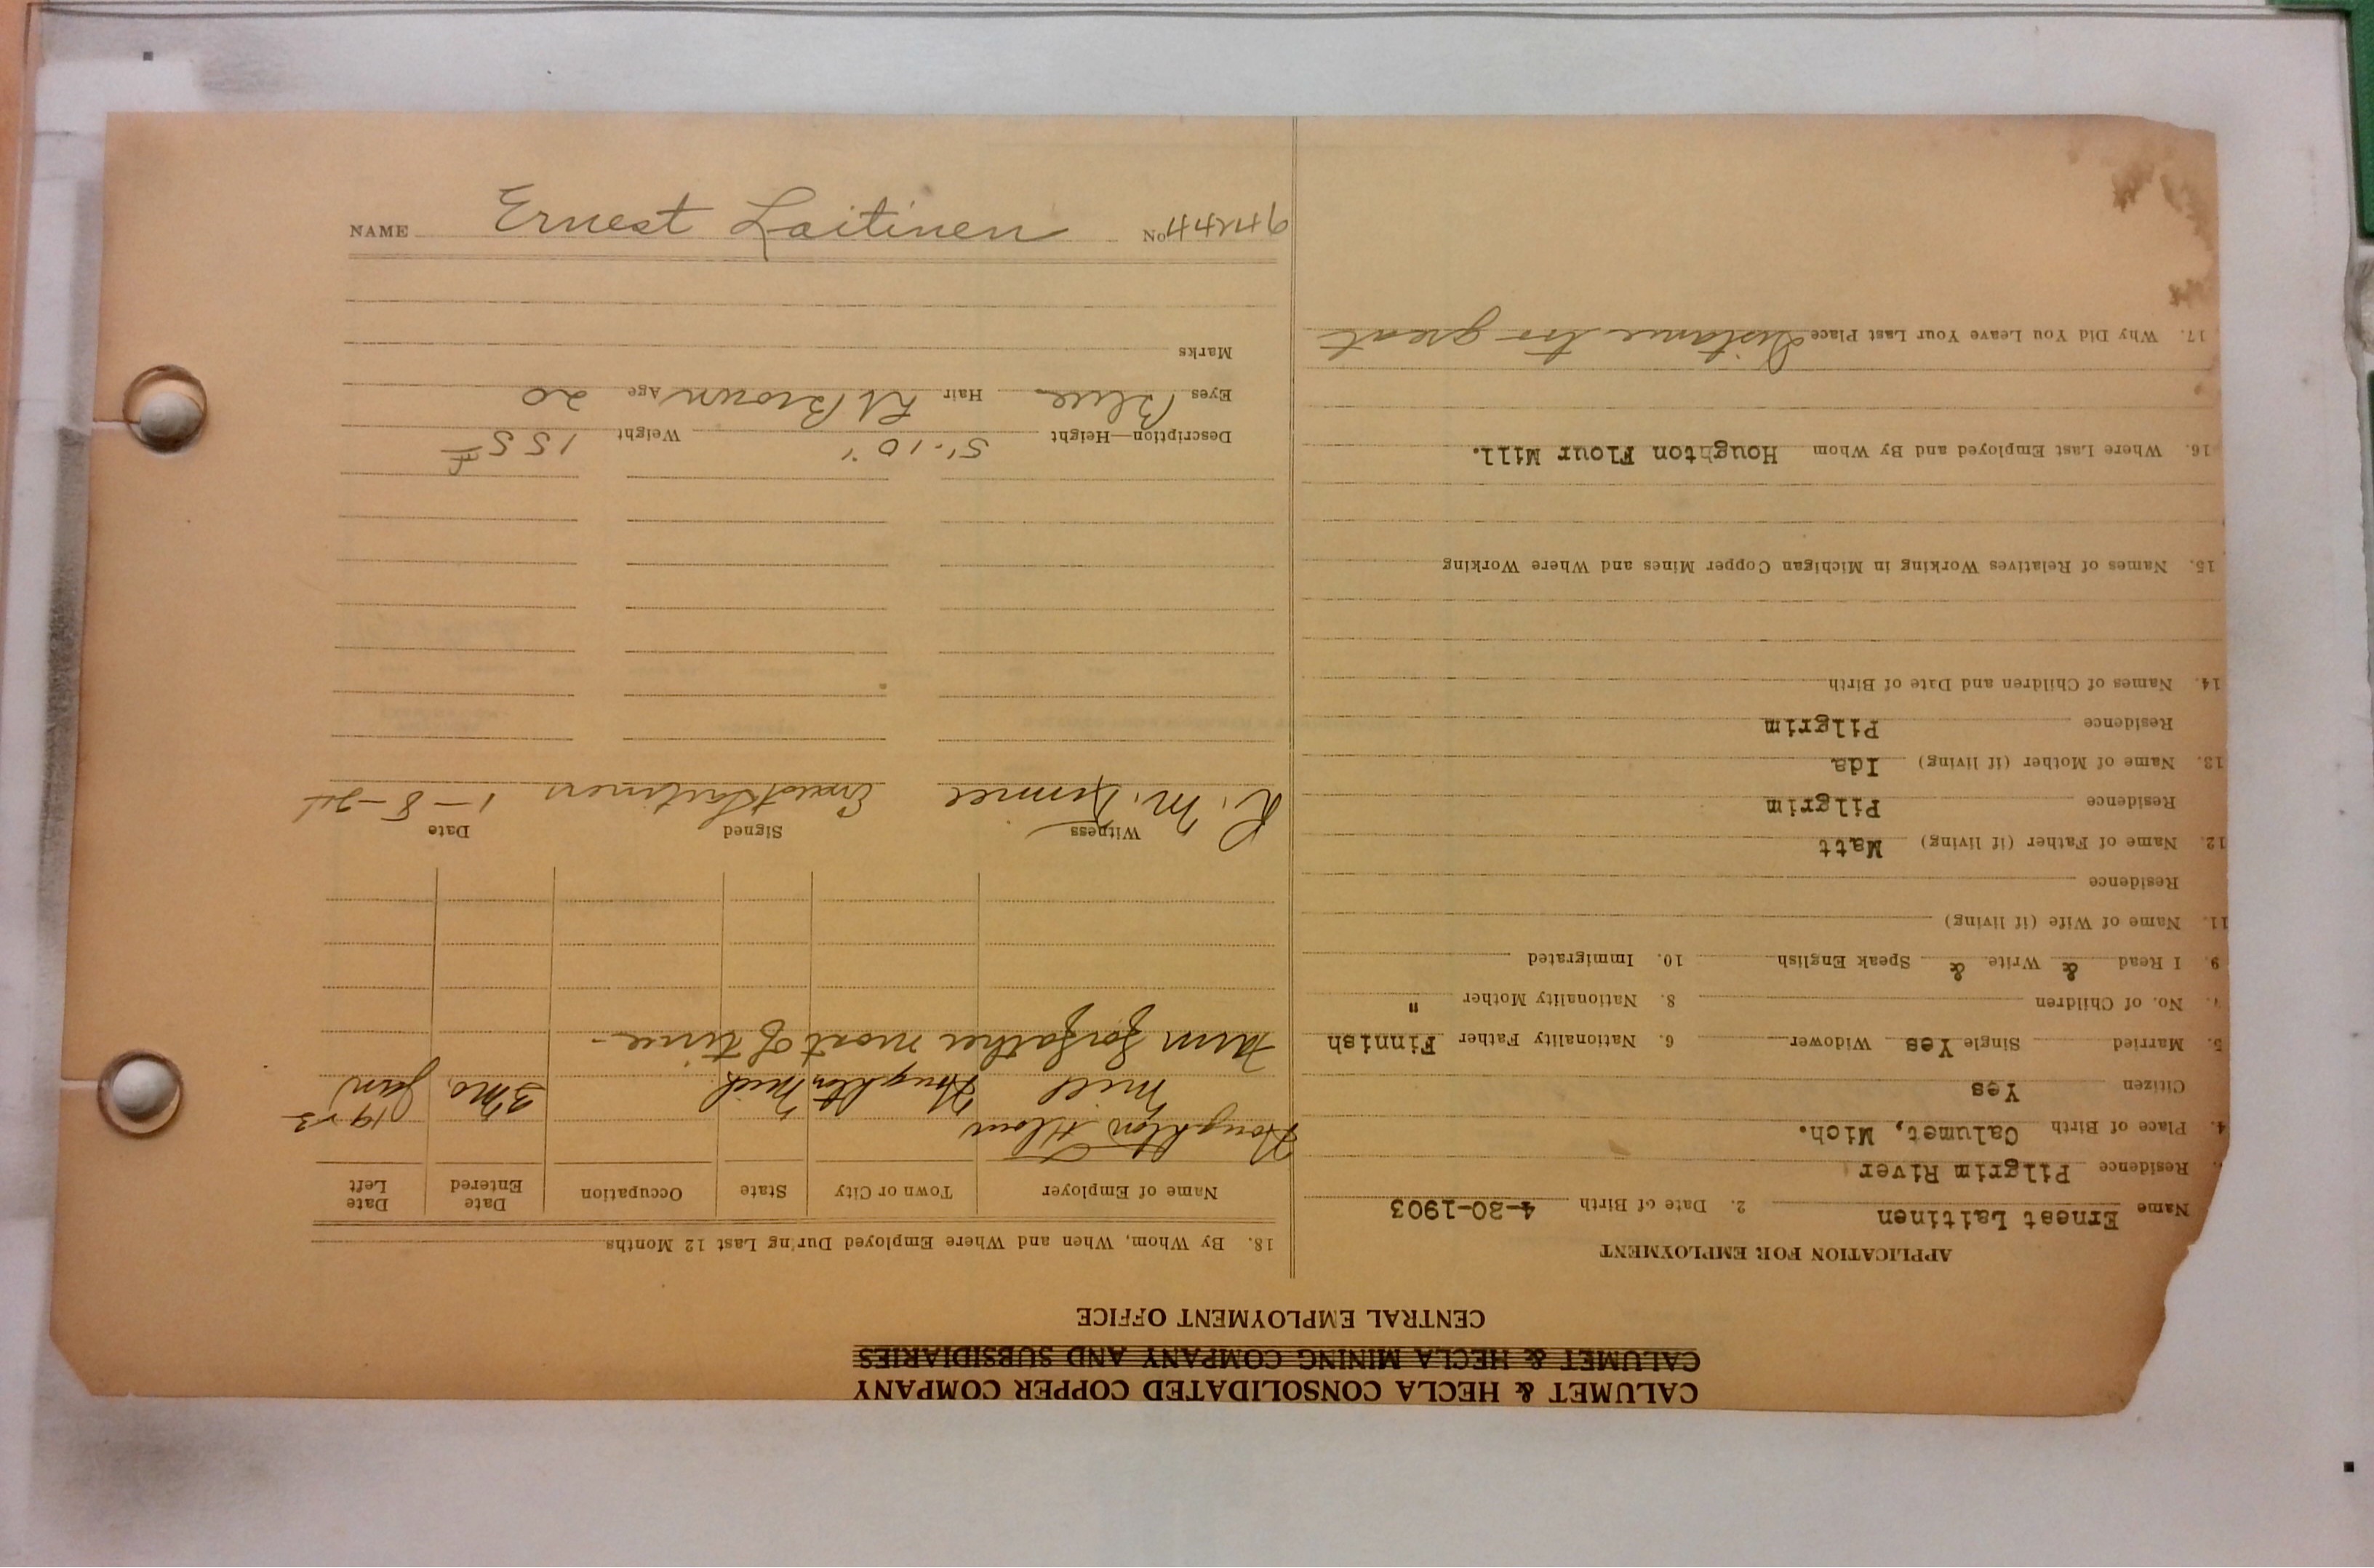 CALUMET & HECLA CONSOLIDATED COPPER COMPANY
CALUMET & HECLA MINING COMPANY AND SUBSIDIARIES
CENTRAL EMPLOYMENT OFFICE
APPLICATION FOR EMPLOYMENT
Name Ernest Laitinen 2. Date of Birth 4-30-1903
Residence Pilgrim River
4. Place of Birth Calumet, Mich.
Citizen Yes
5. Married Single Yes Widower 6. Nationality Father Finnish
7. No. of Children 8. Nationality Mother "
9. I Read & Write & Speak English 10. Immigrated
11. Name of Wife (if living)
Residence
12. Name of Father (if living) Matt
Residence Pilgrim
13. Name of Mother (if living) Ida
Residence Pilgrim
14. Names of Children and Date of Birth
15. Names of Relatives Working in Michigan Copper Mines and Where Working
16. Where Last Employed and By Whom Houghton Flour Mill.
17. Why Did You Leave Your Last Place Distance too great
18. By Whom, When and Where Employed During Last 12 Months
Name of Employer Town or City State Occupation Date Entered Date Left
Houghton Flour 1923
Mill Houghton Mich 3 mo. Jan
for father most of time -
Witness Signed Date
R. M. Ernest Laitinen 1-8-24
Description—Height 5'-10" Weight 155
Eyes Blue Hair Lt Brown Age 20
Marks
NAME Ernest Laitinen No.